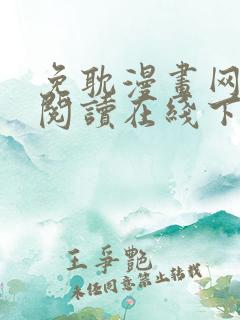 免耽漫畫网
閱讀在綫下
王爭艷
未经同意禁止转载